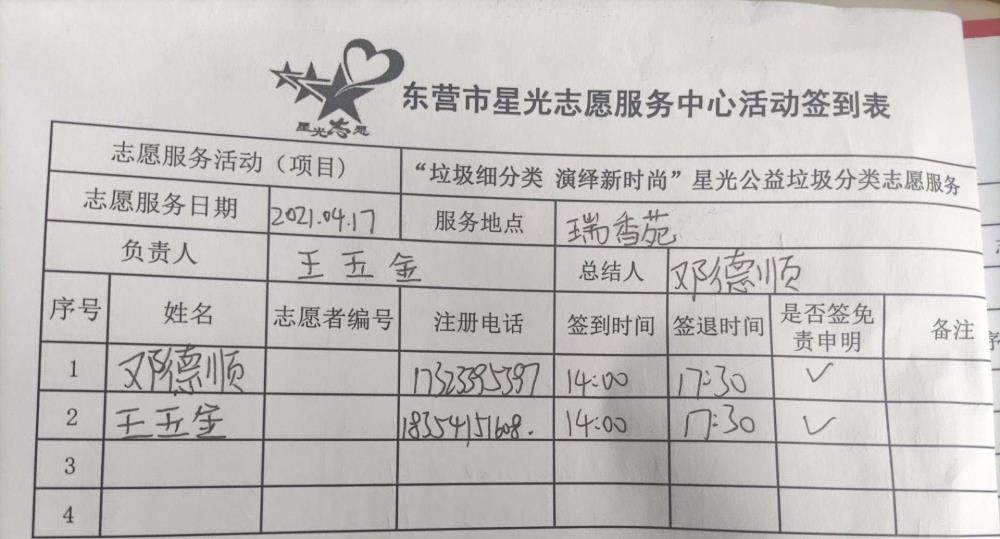 星光志愿
东营市星光志愿服务中心活动签到表
志愿服务活动（项目） “垃圾细分类 演绎新时尚”星光公益垃圾分类志愿服务
志愿服务日期 2021.04.17 服务地点 瑞香苑
负责人 王五金 总结人 邓德顺
序号 姓名 志愿者编号 注册电话 签到时间 签退时间 是否签免责申明 备注
1 邓德顺 17323395397 14:00 17:30 ✓
2 王五金 18354151608. 14:00 17:30 ✓
3
4